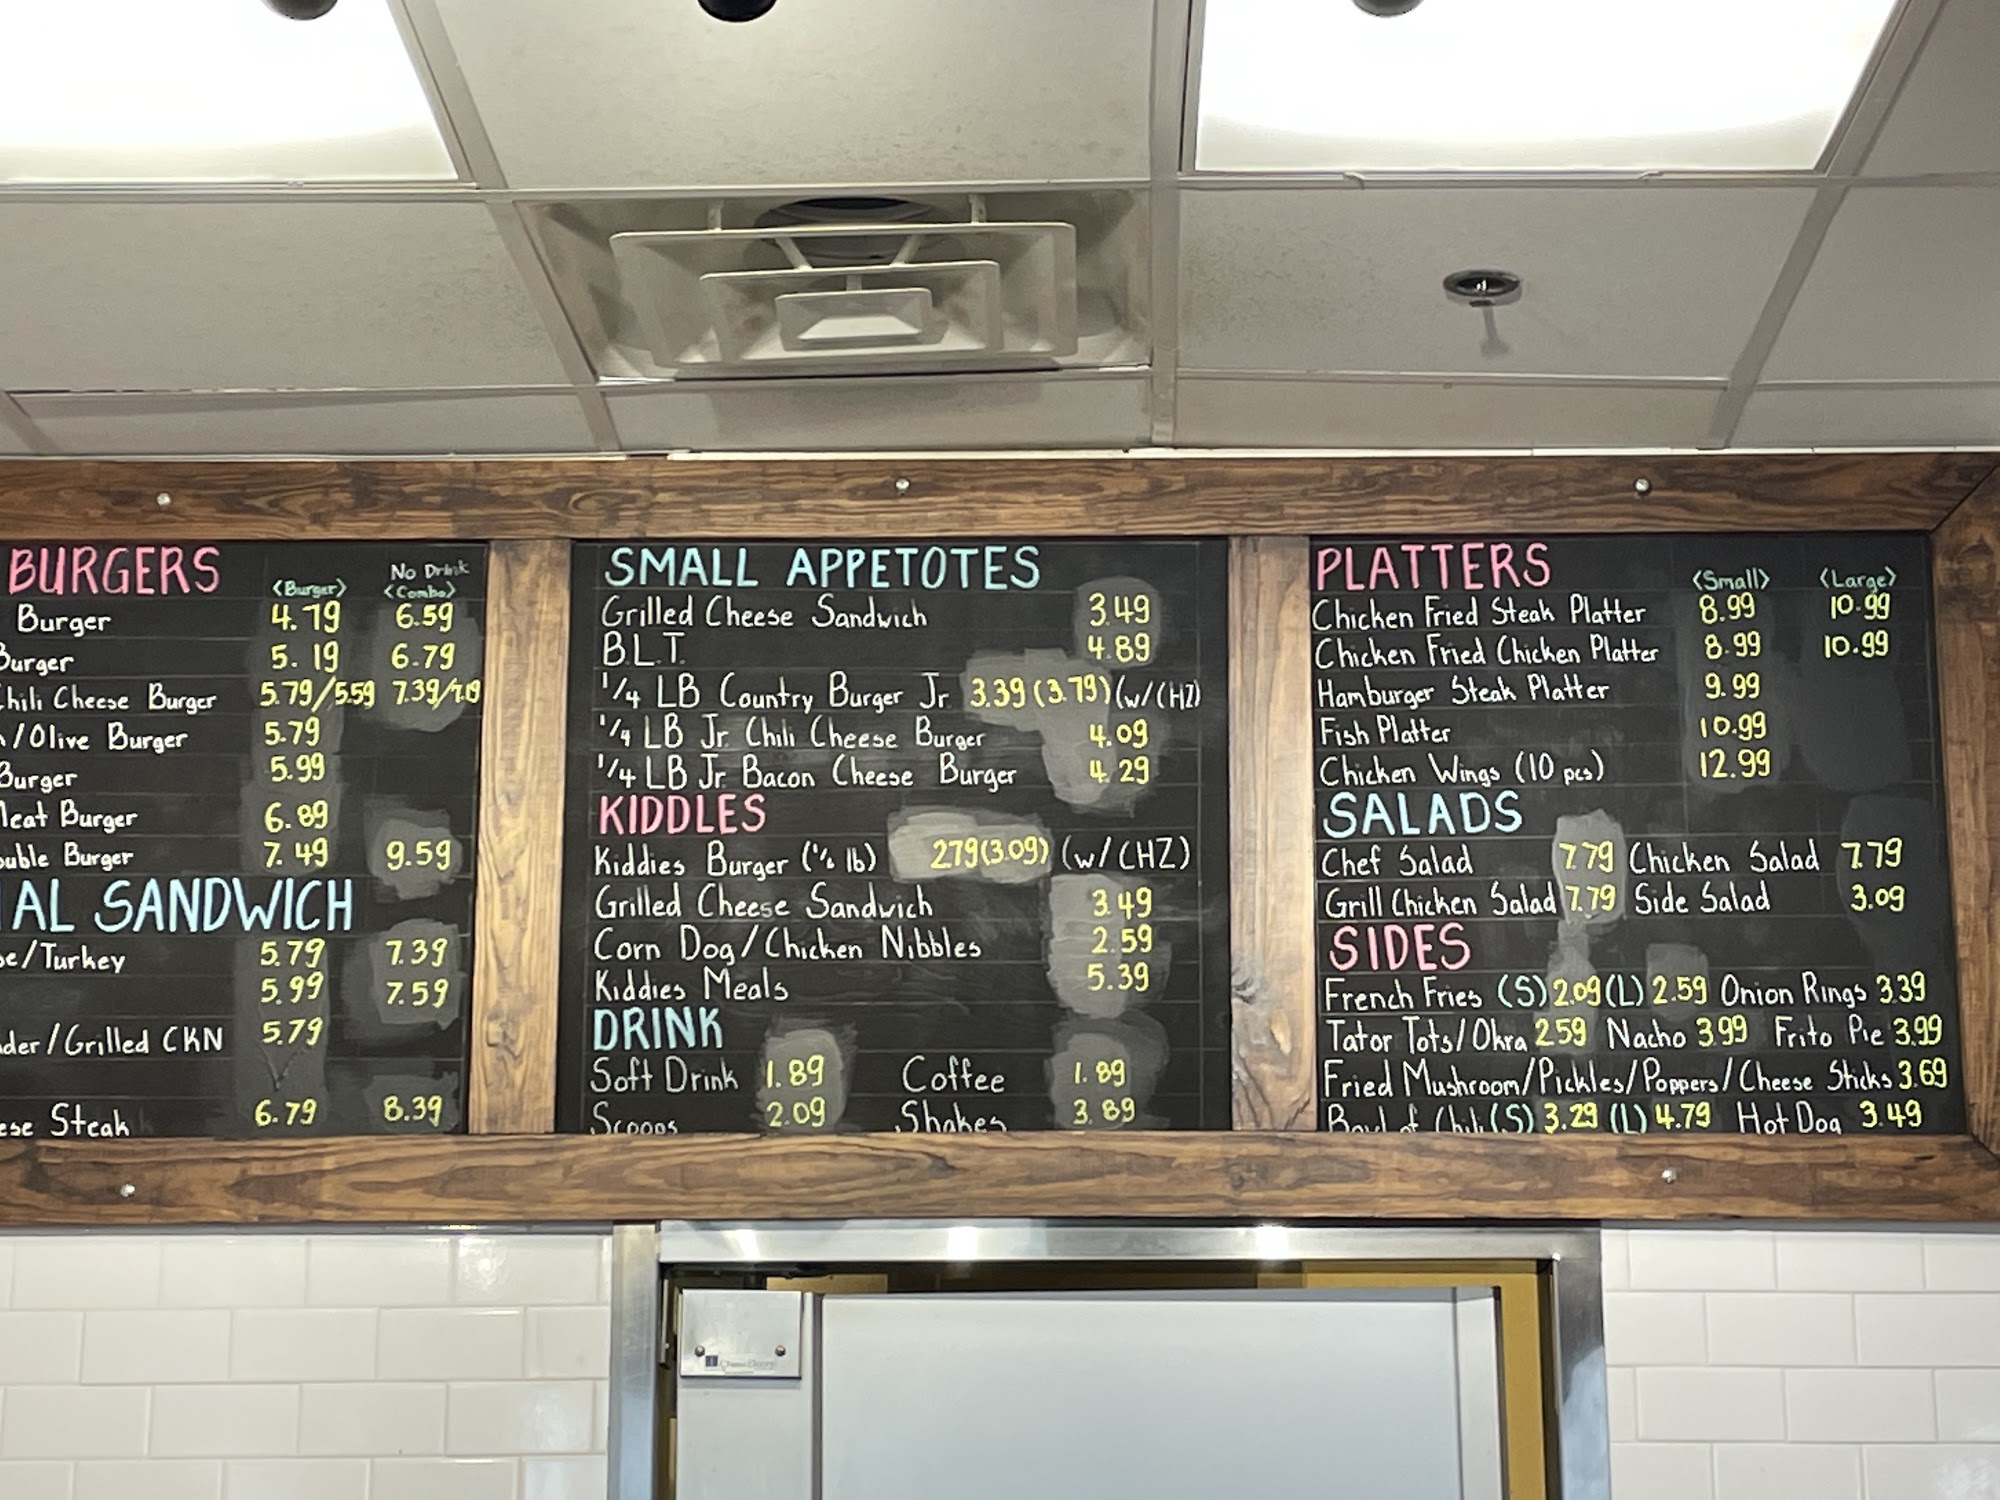 BURGERS <Burger> No Drink <Combo>
Burger 4.79 6.59
Burger 5.19 6.79
Chili Cheese Burger 5.79/5.59 7.39/7.19
/Olive Burger 5.79
Burger 5.99
Meat Burger 6.89
ouble Burger 7.49 9.59
IAL SANDWICH
/Turkey 5.79 7.39
5.99 7.59
der/Grilled CKN 5.79
ese Steak 6.79 8.39
SMALL APPETOTES
Grilled Cheese Sandwich 3.49
B.L.T. 4.89
1/4 LB Country Burger Jr 3.39 (3.79) (w/CHZ)
1/4 LB Jr. Chili Cheese Burger 4.09
1/4 LB Jr. Bacon Cheese Burger 4.29
KIDDLES
Kiddies Burger ( lb) 279(3.09) (w/CHZ)
Grilled Cheese Sandwich 3.49
Corn Dog/Chicken Nibbles 2.59
Kiddies Meals 5.39
DRINK
Soft Drink 1.89 Coffee 1.89
Scoops 2.09 Shakes 3.89
PLATTERS <Small> <Large>
Chicken Fried Steak Platter 8.99 10.99
Chicken Fried Chicken Platter 8.99 10.99
Hamburger Steak Platter 9.99
Fish Platter 10.99
Chicken Wings (10 pcs) 12.99
SALADS
Chef Salad 7.79 Chicken Salad 7.79
Grill Chicken Salad 7.79 Side Salad 3.09
SIDES
French Fries (S) 2.09 (L) 2.59 Onion Rings 3.39
Tator Tots/Okra 2.59 Nacho 3.99 Frito Pie 3.99
Fried Mushroom/Pickles/Poppers/Cheese Sticks 3.69
Bowl of Chili (S) 3.29 (L) 4.79 Hot Dog 3.49